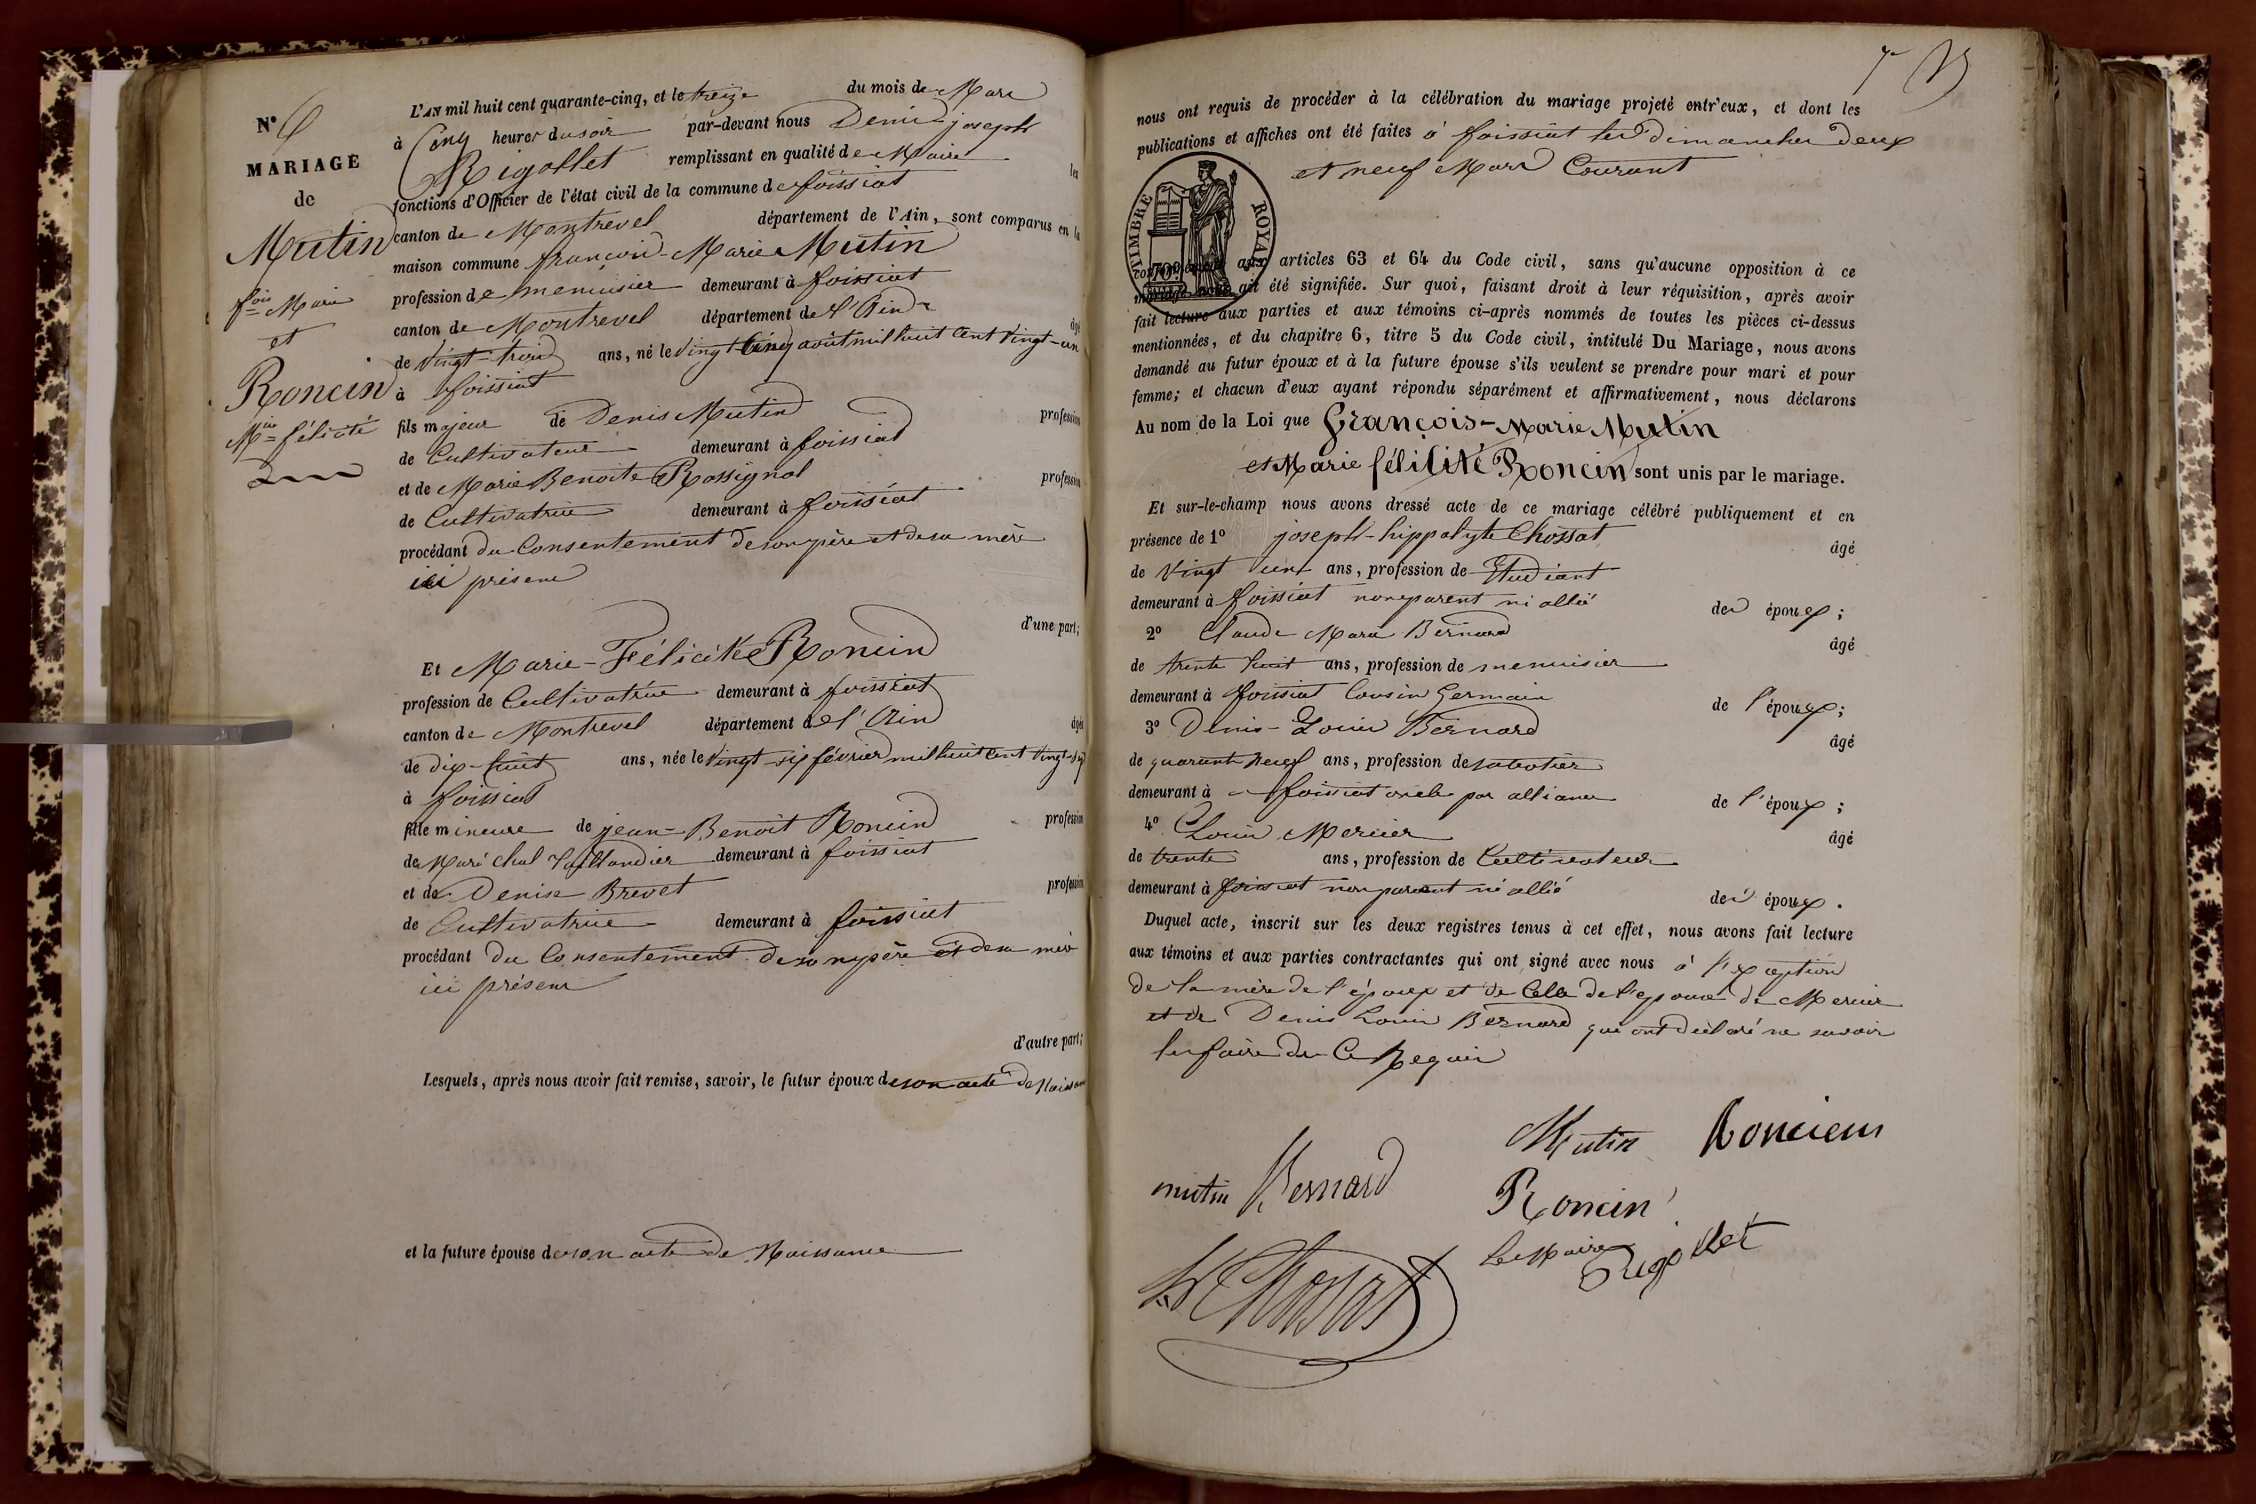 N° 6
MARIAGE
de
Mutin
fois Marie
et
Roncin
Mie félicité
L'AN mil huit cent quarante-cinq, et le treize du mois de Mars
à Cinq heures du soir par-devant nous Denis joseph
Rigollet remplissant en qualité de Maire les
fonctions d'Officier de l'état civil de la commune de foissiat
canton de Montrevel département de l'Ain, sont comparus en la
maison commune françois-Marie Mutin
profession de menuisier demeurant à foissiat
canton de Montrevel département de l'Ain âgé
de vingt-trois ans, né le vingt Cinq août mil huit Cent vingt-un
à foissiat
fils majeur de Denis Mutin profession
de Cultivateur demeurant à foissiat
et de Marie Benoite Rossignol profession
de Cultivatrice demeurant à foissiat
procédant du Consentement de son père et de sa mère
ici présens
d'une part;
Et Marie-Félicité Roncin
profession de Cultivatrice demeurant à foissiat
canton de Montrevel département de l'Ain âgée
de dix-huit ans, née le vingt-six février mil huit Cent vingt-sept
à foissiat
fille mineure de jean-Benoit Roncin profession
de Maréchal Taillandier demeurant à foissiat
et de Denise Brevet profession
de Cultivatrice demeurant à foissiat
procédant du Consentement de son père et de sa mère
ici présens
d'autre part;
Lesquels, après nous avoir fait remise, savoir, le futur époux de son acte de Naissance
et la future épouse de son acte de Naissance
nous ont requis de procéder à la célébration du mariage projeté entr'eux, et dont les
publications et affiches ont été faites à foissiat les dimanches deux
et neuf Mars Courant
TIMBRE ROYAL
conformément aux articles 63 et 64 du Code civil, sans qu'aucune opposition à ce
mariage nous ait été signifiée. Sur quoi, faisant droit à leur réquisition, après avoir
fait lecture aux parties et aux témoins ci-après nommés de toutes les pièces ci-dessus
mentionnées, et du chapitre 6, titre 5 du Code civil, intitulé Du Mariage, nous avons
demandé au futur époux et à la future épouse s'ils veulent se prendre pour mari et pour
femme; et chacun d'eux ayant répondu séparément et affirmativement, nous déclarons
Au nom de la Loi que François-Marie Mutin
et Marie félicité Roncin sont unis par le mariage.
Et sur-le-champ nous avons dressé acte de ce mariage célébré publiquement et en
présence de 1° joseph-hippolyte Chossat âgé
de vingt un ans, profession de Etudiant
demeurant à foissiat non parent ni allié des époux;
2° Claude Marie Bernard âgé
de trente huit ans, profession de menuisier
demeurant à foissiat Cousin Germain de l'époux;
3° Denis-Louis Bernard âgé
de quarante neuf ans, profession de sabotier
demeurant à foissiat oncle par alliance de l'époux;
4° Louis Mercier âgé
de trente ans, profession de Cultivateur
demeurant à foissiat non parent ni allié des époux.
Duquel acte, inscrit sur les deux registres tenus à cet effet, nous avons fait lecture
aux témoins et aux parties contractantes qui ont signé avec nous à l'exception
de la mère de l'époux et de Celle de l'epouse de Mercier
et de Denis Louis Bernard qui ont déclaré ne savoir
le faire de Ce Requis
Mutin Roncien
mutin Bernard Roncin
Le Maire
Rigollet
Chossat